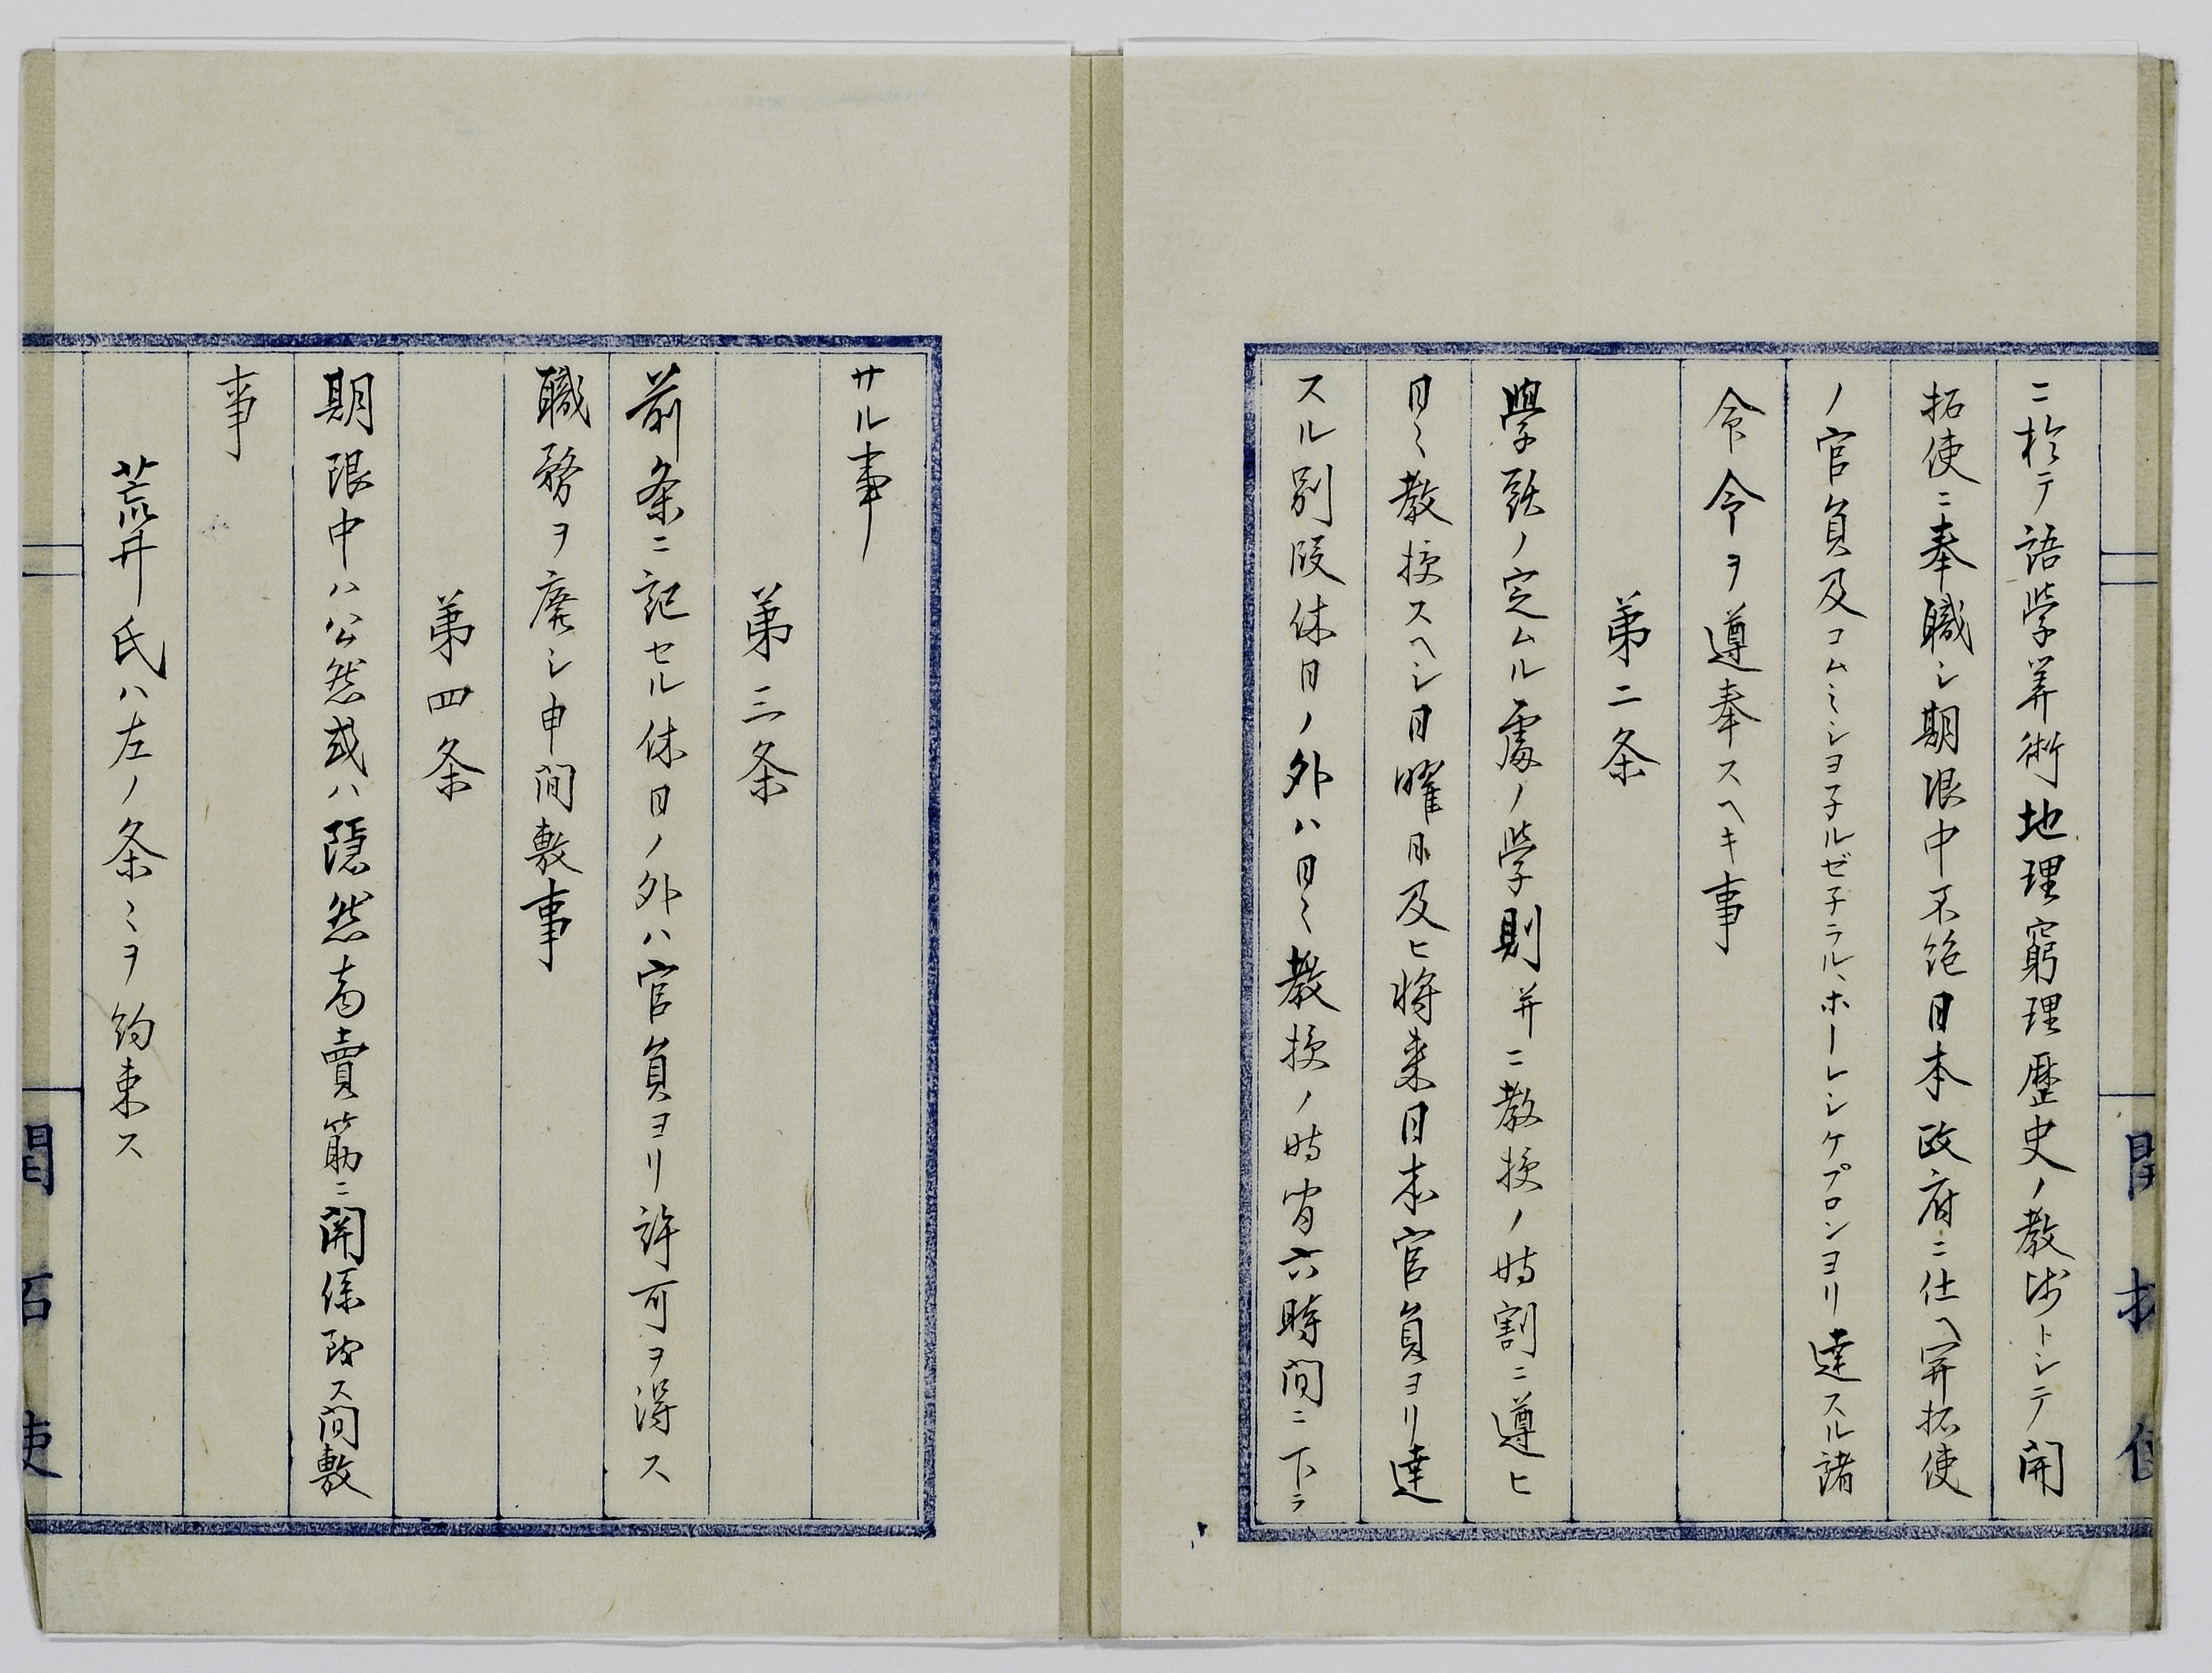 ニ於テ語學算術地理窮理歴史ノ教師トシテ開
拓使ニ奉職シ期限中不絶日本政府ニ仕ヘ開拓使
ノ官員及コムミシヨ子ルゼ子ラル、ホーレンケプロンヨリ達スル諸
命令ヲ遵奉スヘキ事
第二条
學頭ノ定ムル處ノ學則并ニ教授ノ時割ニ遵ヒ
日々教授スヘシ日曜日及ヒ将来日本官員ヨリ達
スル別段休日ノ外ハ日々教授ノ時宵六時間ニ下ラ
サル事
第三条
前条ニ記セル休日ノ外ハ官員ヨリ許可ヲ得ス
職務ヲ廃シ申間敷事
第四条
期限中ハ公然或ハ隠然商賣筋ニ関係致ス間敷
事
荒井氏ハ左ノ条々ヲ約束ス
開拓使